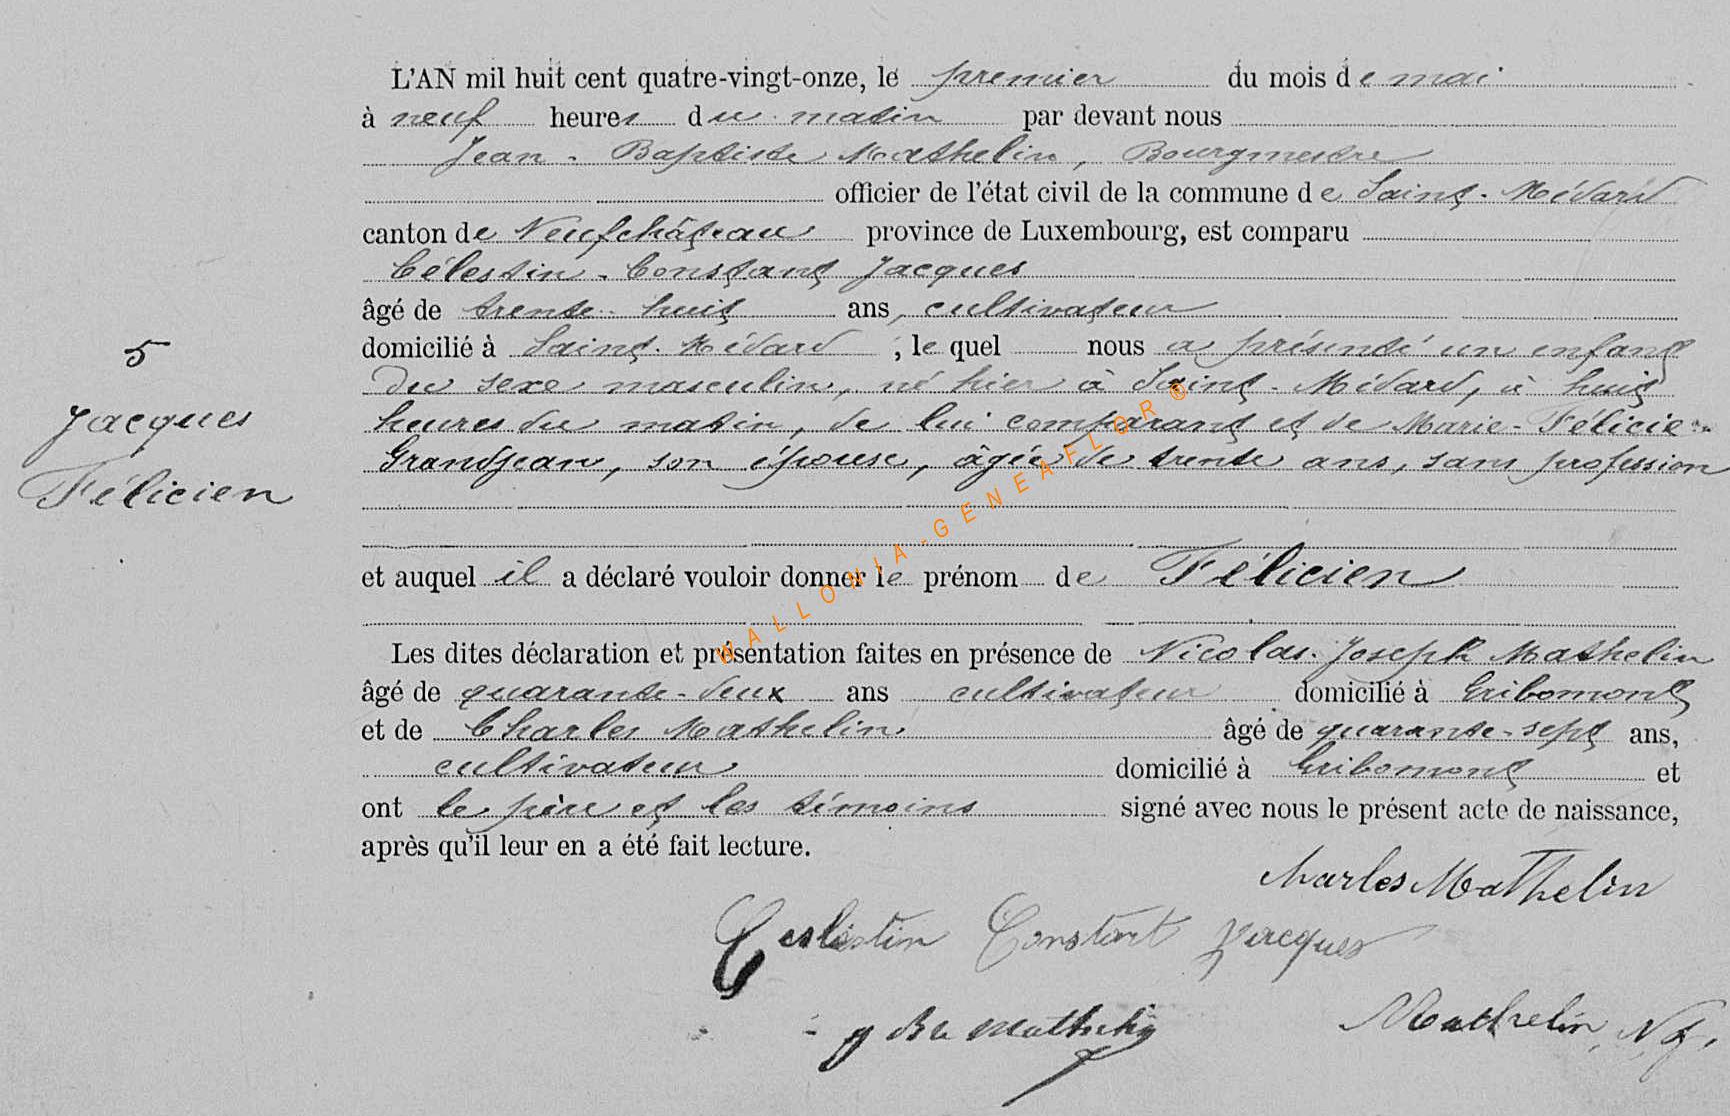 L'AN mil huit cent quatre-vingt-onze, le premier du mois de mai
à neuf heures du matin par devant nous
Jean-Baptiste Mathelin, Bourgmestre
officier de l'état civil de la commune de Saint-Médard
canton de Neufchâteau province de Luxembourg, est comparu
Célestin-Constant Jacques
âgé de trente-huit ans, cultivateur
domicilié à Saint-Médard, lequel nous a présenté un enfant
du sexe masculin, né hier à Saint-Médard, à huit
heures du matin, de lui comparant et de Marie-Félicie
Grandjean, son épouse, âgée de trente ans, sans profession
et auquel il a déclaré vouloir donner le prénom de Félicien
Les dites déclaration et présentation faites en présence de Nicolas-Joseph Mathelin
âgé de quarante-deux ans cultivateur domicilié à Gribomont
et de Charles Mathelin âgé de quarante-sept ans,
cultivateur domicilié à Gribomont et
ont le père et les témoins signé avec nous le présent acte de naissance,
après qu'il leur en a été fait lecture.
5
Jacques
Félicien
Charles Mathelin
Celestin Constant Jacques
J Bte Mathelin
Mathelin, N. J.
WALLONIA-GENEAFLOR ®